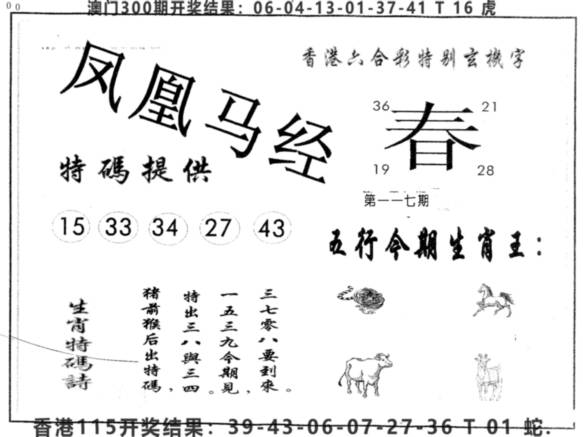 澳门300期开奖结果：06-04-13-01-37-41 T 16 虎
香港六合彩特别玄機字
凤凰马经
36 21
春
19 28
特碼提供
第一一七期
15 33 34 27 43
五行今期生肖王：
三七零八要到來。
一五三九今期見，
特出三八與三四。
豬前猴后出特碼，
生肖特碼詩
香港115开奖结果：39-43-06-07-27-36 T 01 蛇.